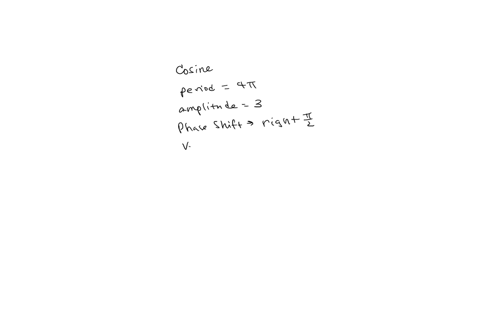 Cosine
period = 4π
amplitude = 3
Phase shift → right π/2
V.